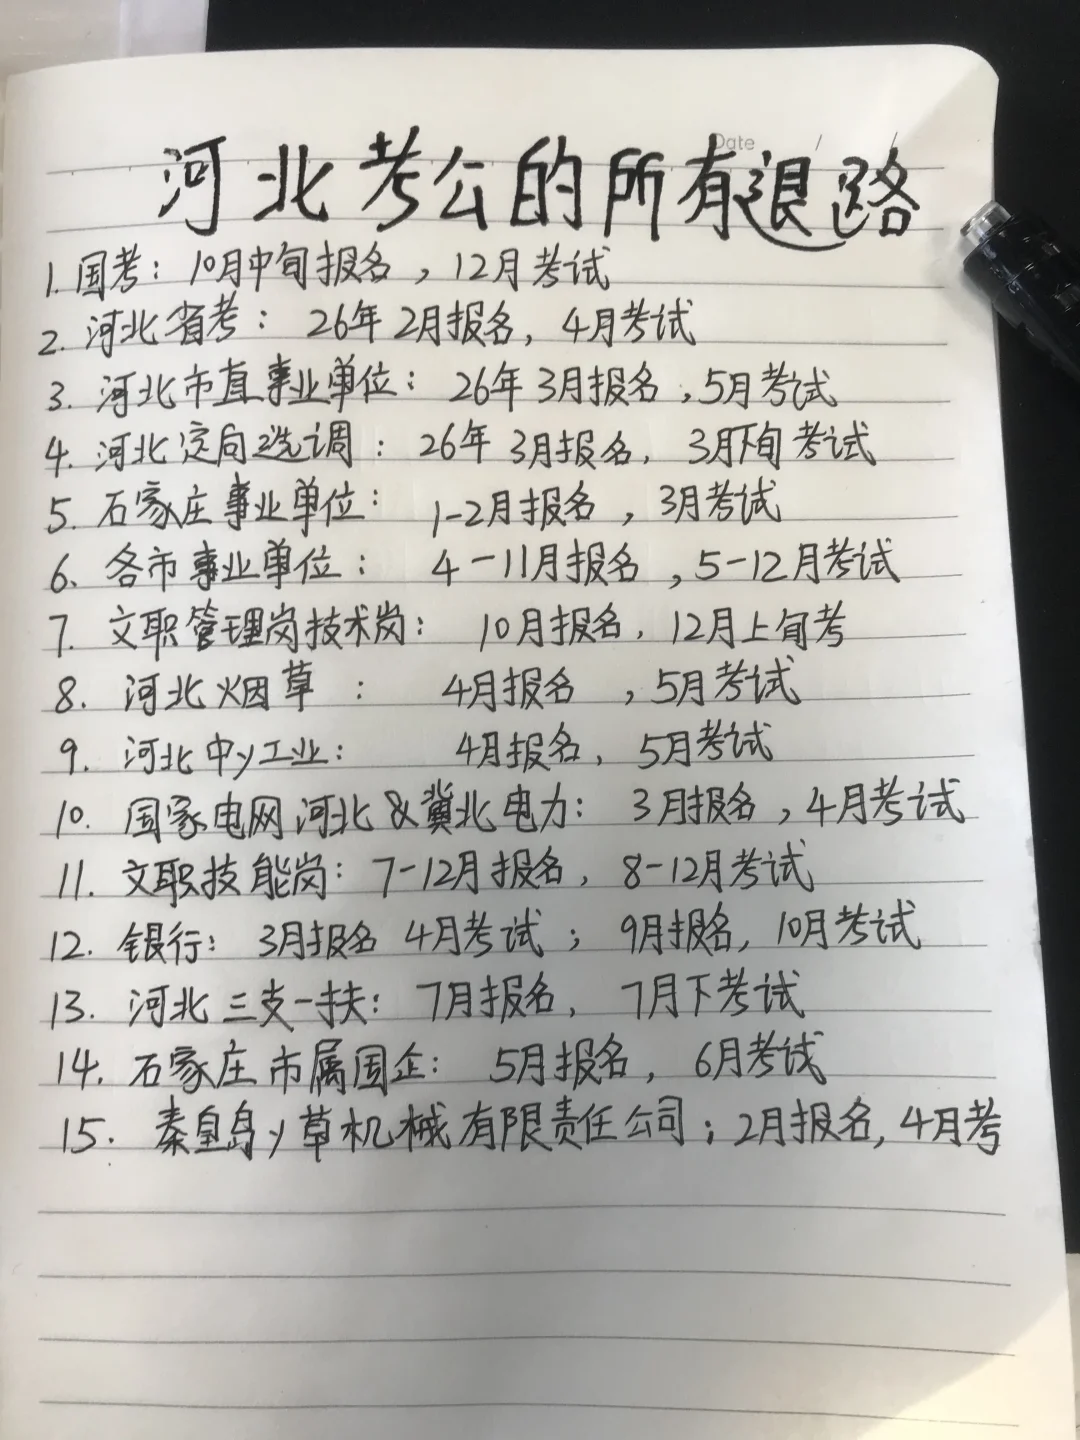 Date / /
河北考公的所有退路
1.国考：10月中旬报名，12月考试
2.河北省考：26年2月报名，4月考试
3.河北市直事业单位：26年3月报名，5月考试
4.河北定向选调：26年3月报名，3月下旬考试
5.石家庄事业单位：1-2月报名，3月考试
6.各市事业单位：4-11月报名，5-12月考试
7.文职管理岗技术岗：10月报名，12月上旬考
8.河北烟草：4月报名，5月考试
9.河北中y工业：4月报名，5月考试
10.国家电网河北&冀北电力：3月报名，4月考试
11.文职技能岗：7-12月报名，8-12月考试
12.银行：3月报名 4月考试；9月报名，10月考试
13.河北三支一扶：7月报名，7月下考试
14.石家庄市属国企：5月报名，6月考试
15.秦皇岛y草机械有限责任公司；2月报名，4月考